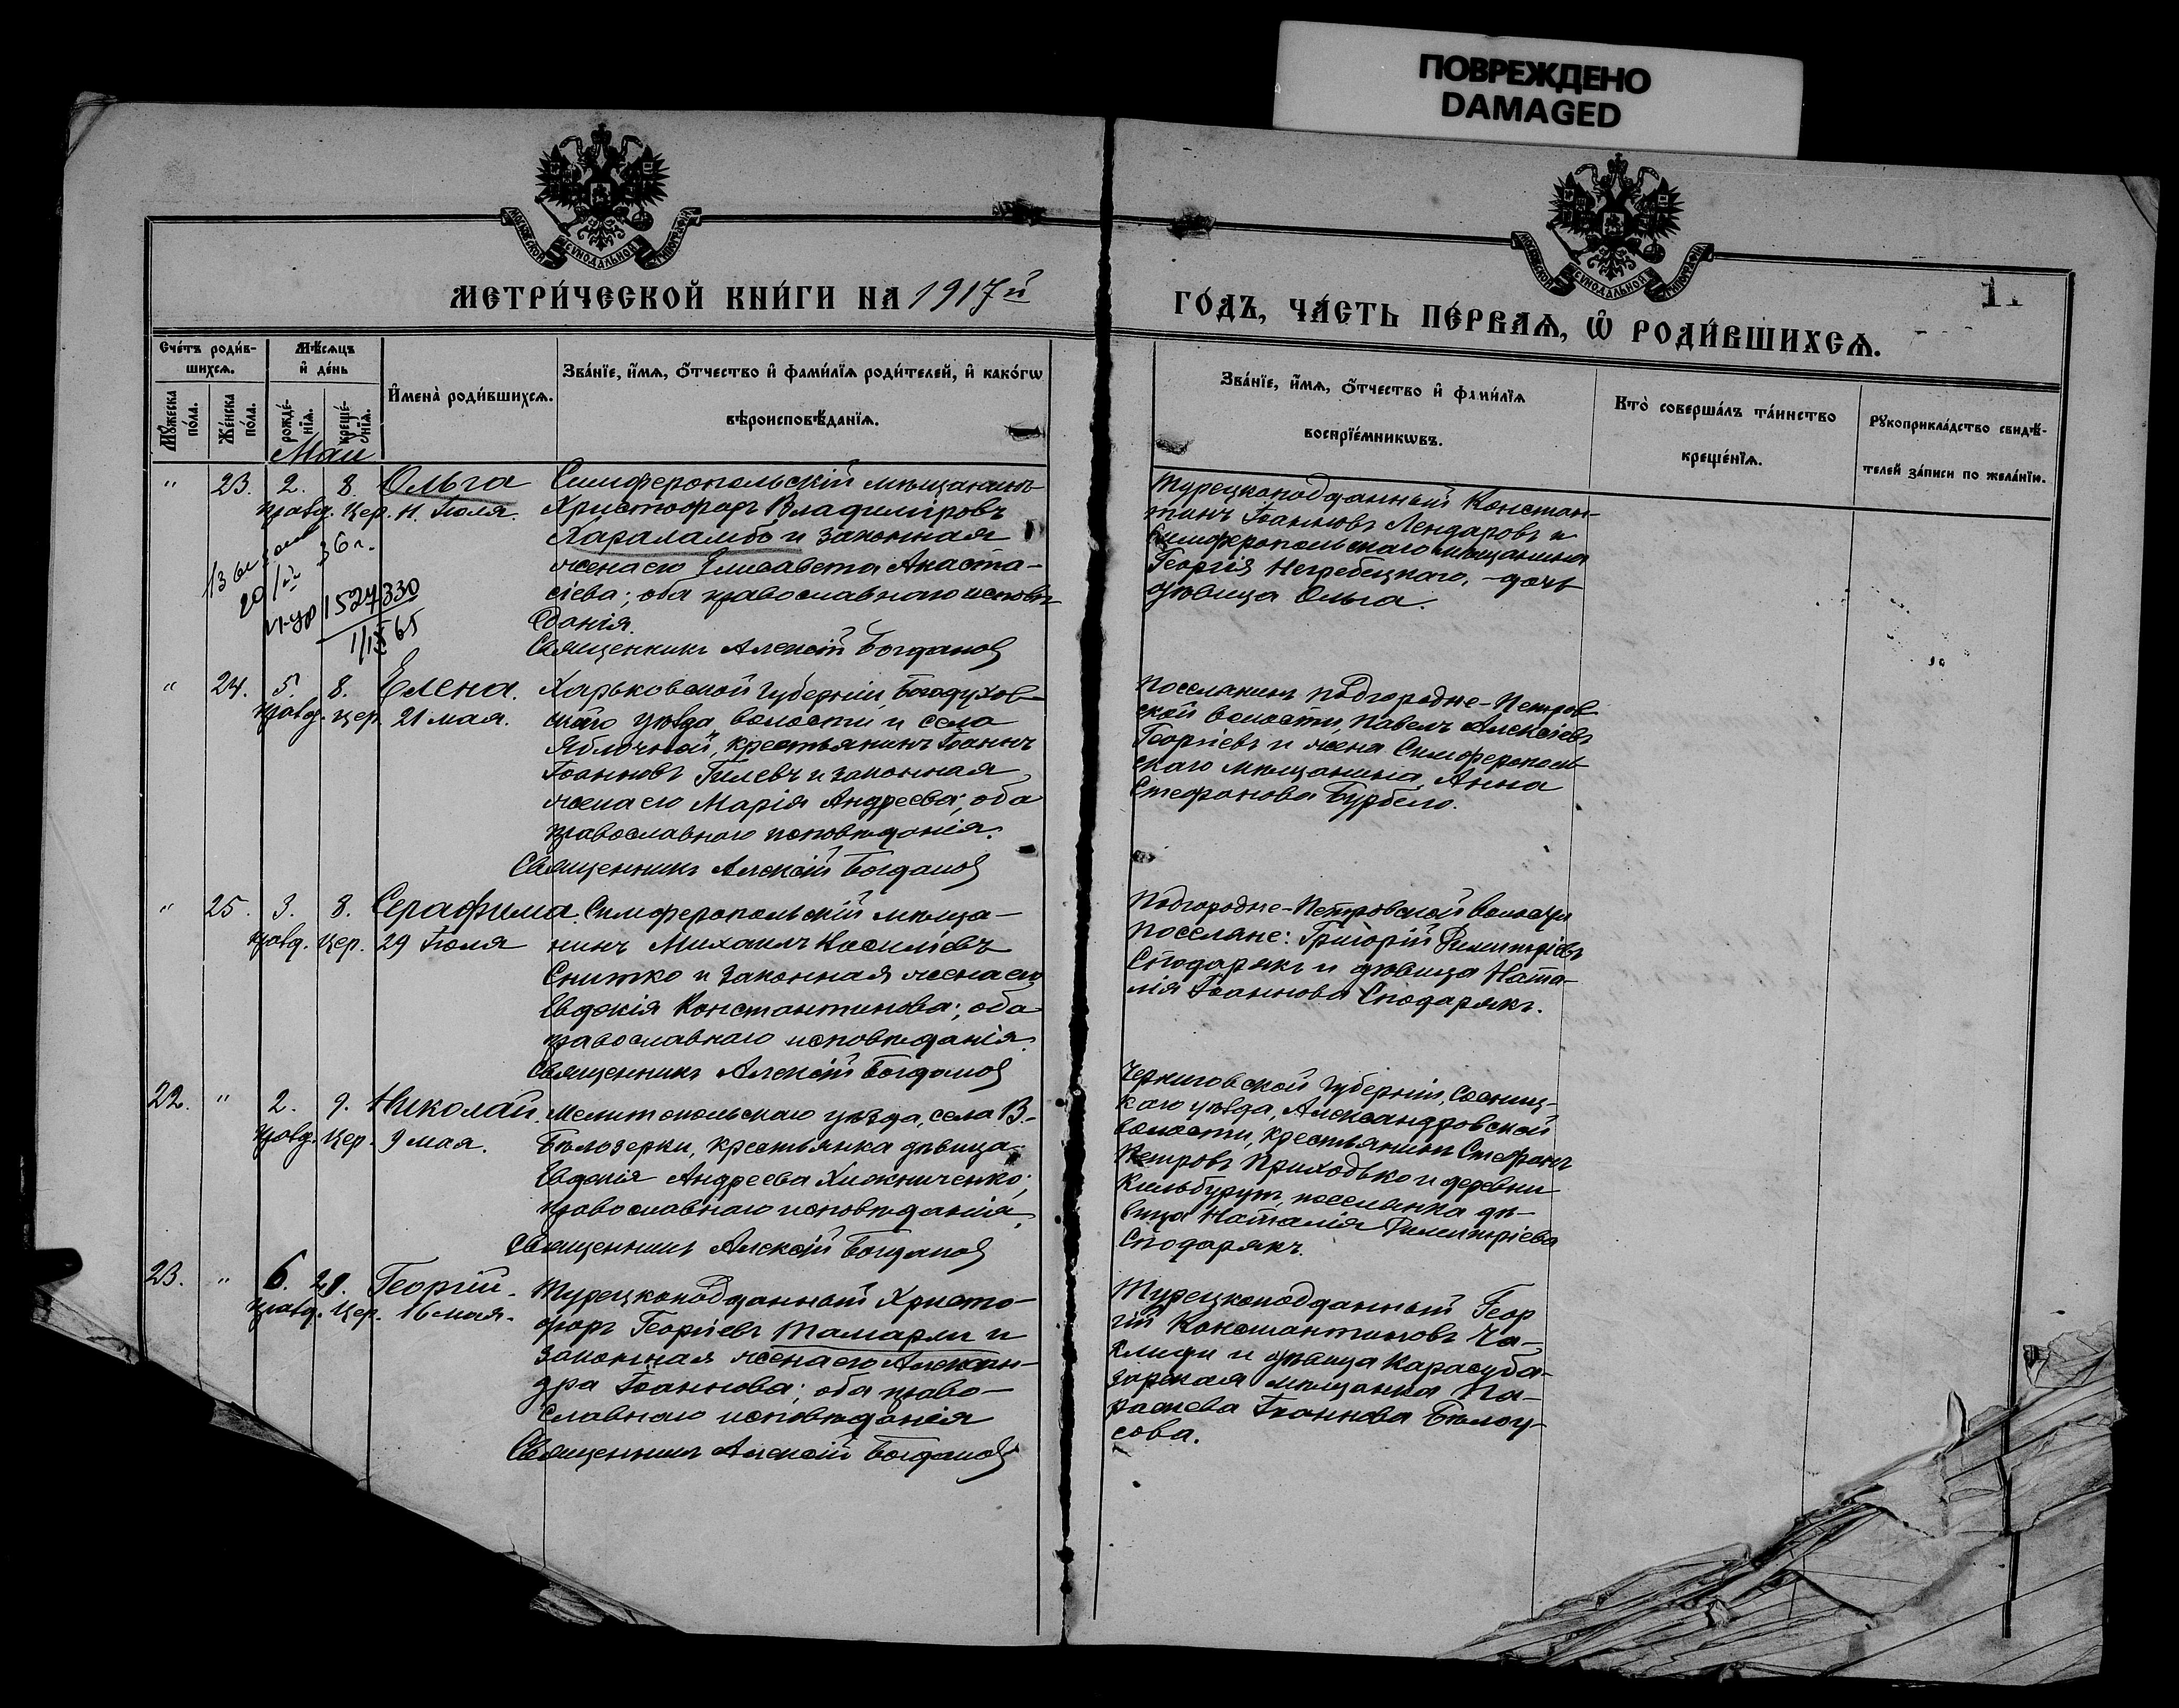 ПОВРЕЖДЕНО
DAMAGED
МЕТРИ́ЧЕСКОЙ КНИ́ГИ НА 1917й
ГО́ДЪ, ЧА́СТЬ ПЕ́РВАѦ, Ѽ РОДИ́ВШИХСѦ.
1.
Сче́тъ роди́в-
шихсѧ.
Мѣ́сѧцъ
и҆ де́нь
Мꙋ́жеска
по́ла.
Же́нска
по́ла.
рожде́-
нїѧ.
креще́-
нїѧ.
И҆мена̀ роди́вшихсѧ.
Зва́нїе, и҆́мѧ, ѻ҆́тчество и҆ фами́лїѧ роди́телей, и҆ како́гѡ
вѣроисповѣ́данїѧ.
Зва́нїе, и҆́мѧ, ѻ҆́тчество и҆ фами́лїѧ
воспрїе́мникѡвъ.
Кто̀ соверша́лъ та́инство
креще́нїѧ.
Рꙋкоприкла́дство свидѣ́-
телей за́писи по жела́нїю.
Май
" 23. 2. 8. Ольга
правд. Цер. 11. Іюля.
Симферопольскій мѣщанинъ
Христофоръ Владиміровъ
Хараламбо и законная
жена его Елисавета Анаста-
сіева; оба православнаго исповѣ-
данія.
Священникъ Алексій Богданов
36 г.
20/
1527330
1/IX 65
Турецкоподданный Констан-
тинъ Іоанновъ Лендаровъ и
Симферопольскаго мѣщанина
Георгія Негребецкаго, - дочь
дѣвица Ольга.
" 24. 5. 8. Елена.
правд. цер. 21 мая.
Харьковской губерніи, Богодухов-
скаго уѣзда, волости и села
Яблочной, крестьянинъ Іоаннъ
Іоанновъ Гилевъ и законная
жена его Марія Андреева; оба
православнаго исповѣданія.
Священникъ Алексій Богданов
Поселянинъ Подгородне-Петров
ской волости, Павелъ Алексіевъ
Георгіевъ и жена Симферополь-
скаго мѣщанина, Анна
Стефанова Бурбело.
" 25. 3. 8. Серафима.
правд. цер. 29 Іюля
Симферопольскій мѣща-
нинъ Михаилъ Василіевъ
Снитко и законная жена его
Евдокія Константинова; оба
православнаго исповѣданія.
Священникъ Алексій Богданов
Подгородне-Петровской волости
поселяне: Григорій Димитріевъ
Сподарякъ и дѣвица Ната-
лія Іоаннова Сподарякъ.
22. " 2. 9. Николай.
правд. цер. 9 мая.
Мелитопольскаго уѣзда, села В.-
Бѣлозерки, крестьянка дѣвица
Евдокія Андреева Хижниченко;
православнаго исповѣданія.
Священникъ Алексій Богданов
Черниговской губерніи, Сосниц-
каго уѣзда, Александровской
волости, крестьянинъ Стефанъ
Петровъ Приходько и деревни
Кильбурун, поселянка дѣ-
вица Наталія Димитріева
Сподарякъ.
23. " 6. 21. Георгій.
правд. цер. 16 мая.
Турецкоподданный Христо-
форъ Георгіевъ Тамарли и
законная жена его Алексан-
дра Іоаннова; оба право-
славнаго исповѣданія
Священникъ Алексій Богданов
Турецкоподданный Геор
гій Константиновъ Ча-
и дѣвица Карасуба-
зарская мѣщанка Па-
раскева Іоаннова Бѣлоу-
сова.